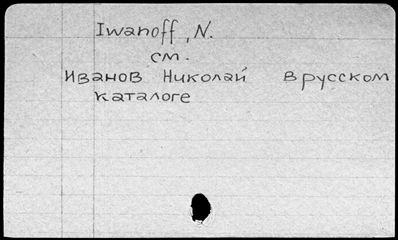 Iwanoff, N.
см.
Иванов Николай в русском
каталоге